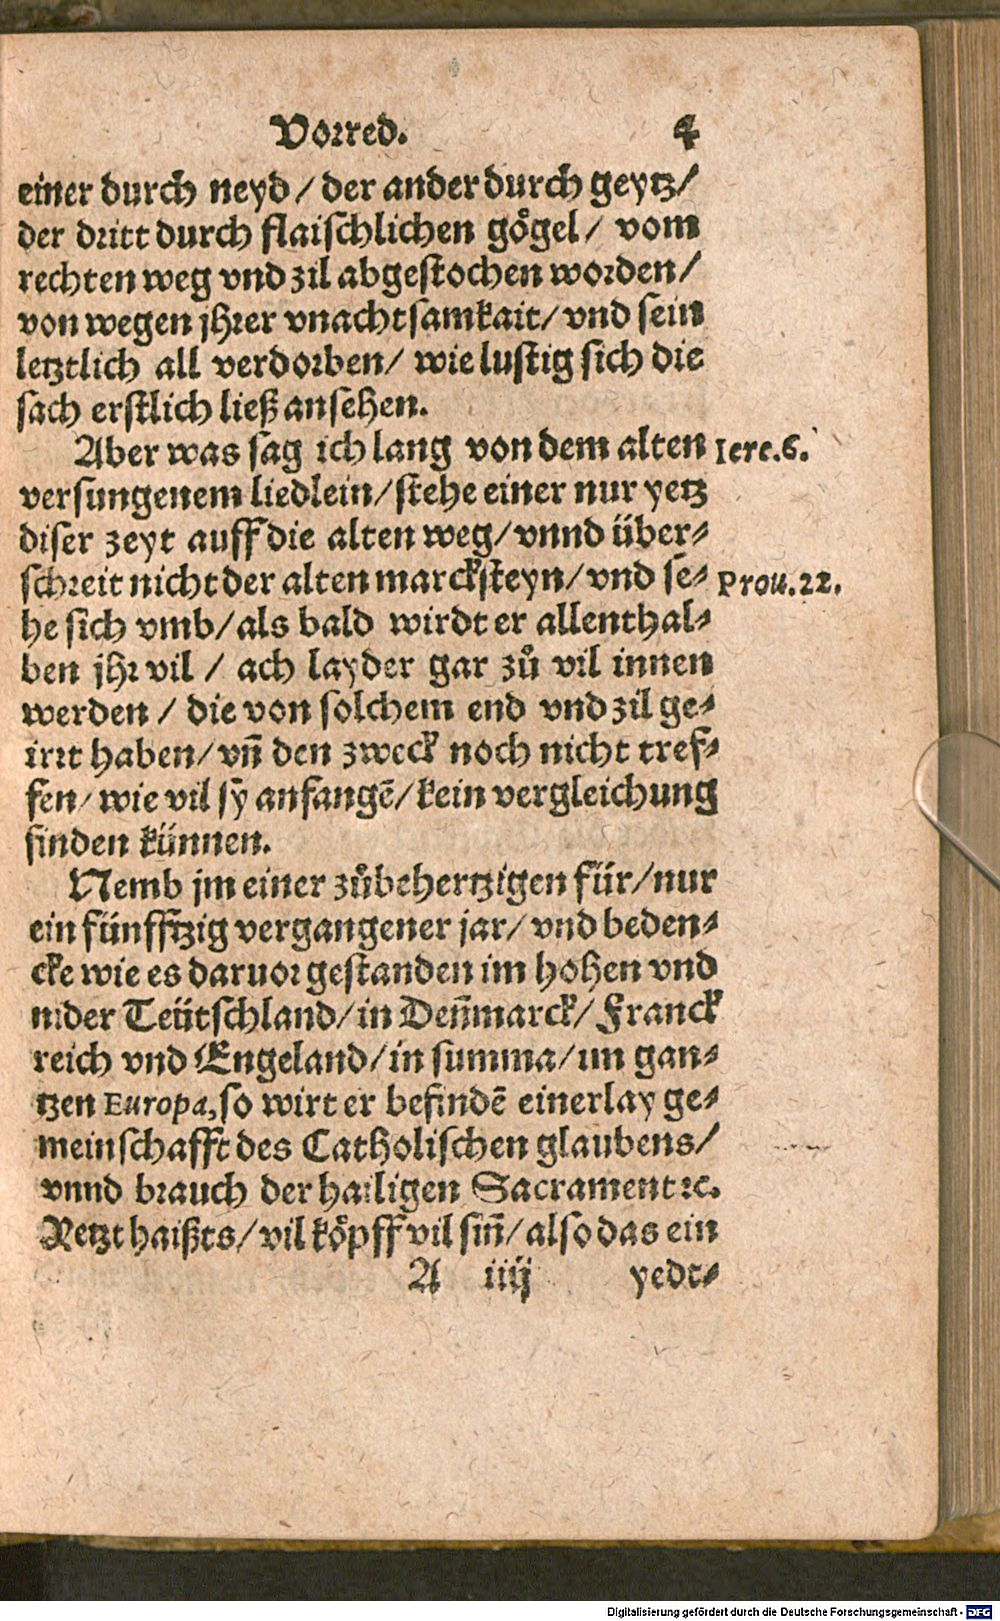 Vorred. 4
einer durch neyd / der ander durch geytz/
der dritt durch flaischlichen gögel / vom
rechten weg vnd zil abgestochen worden/
von wegen jhrer vnachtsamkait/ vnd sein
letztlich all verdorben/ wie lustig sich die
sach erstlich ließ ansehen.
Aber was sag ich lang von dem alten Iere.6.
versungenem liedlein/ stehe einer nur yetz
diser zeyt auff die alten weg/ vnnd über-
schreit nicht der alten marcksteyn/ vnd se- Prou.22.
he sich vmb/ als bald wirdt er allenthal-
ben jhr vil / ach layder gar zuͦ vil innen
werden / die von solchem end vnd zil ge-
irrt haben/ vn̄ den zweck noch nicht tref-
fen/ wie vil sy̆ anfangē/ kein vergleichung
finden künnen.
Nemb jm einer zuͦbehertzigen für/ nur
ein fünfftzig vergangener jar/ vnd beden-
cke wie es daruor gestanden im hohen vnd
nider Teütschland/ in Den̄marck/ Franck
reich vnd Engeland/ in summa/ im gan-
tzen Europa, so wirt er befindē einerlay ge-
meinschafft des Catholischen glaubens/
vnnd brauch der hailigen Sacrament ꝛc.
Yetzt haißts/ vil köpff vil sin̄/ also das ein
A iiij yedt-
Digitalisierung gefördert durch die Deutsche Forschungsgemeinschaft - DFG